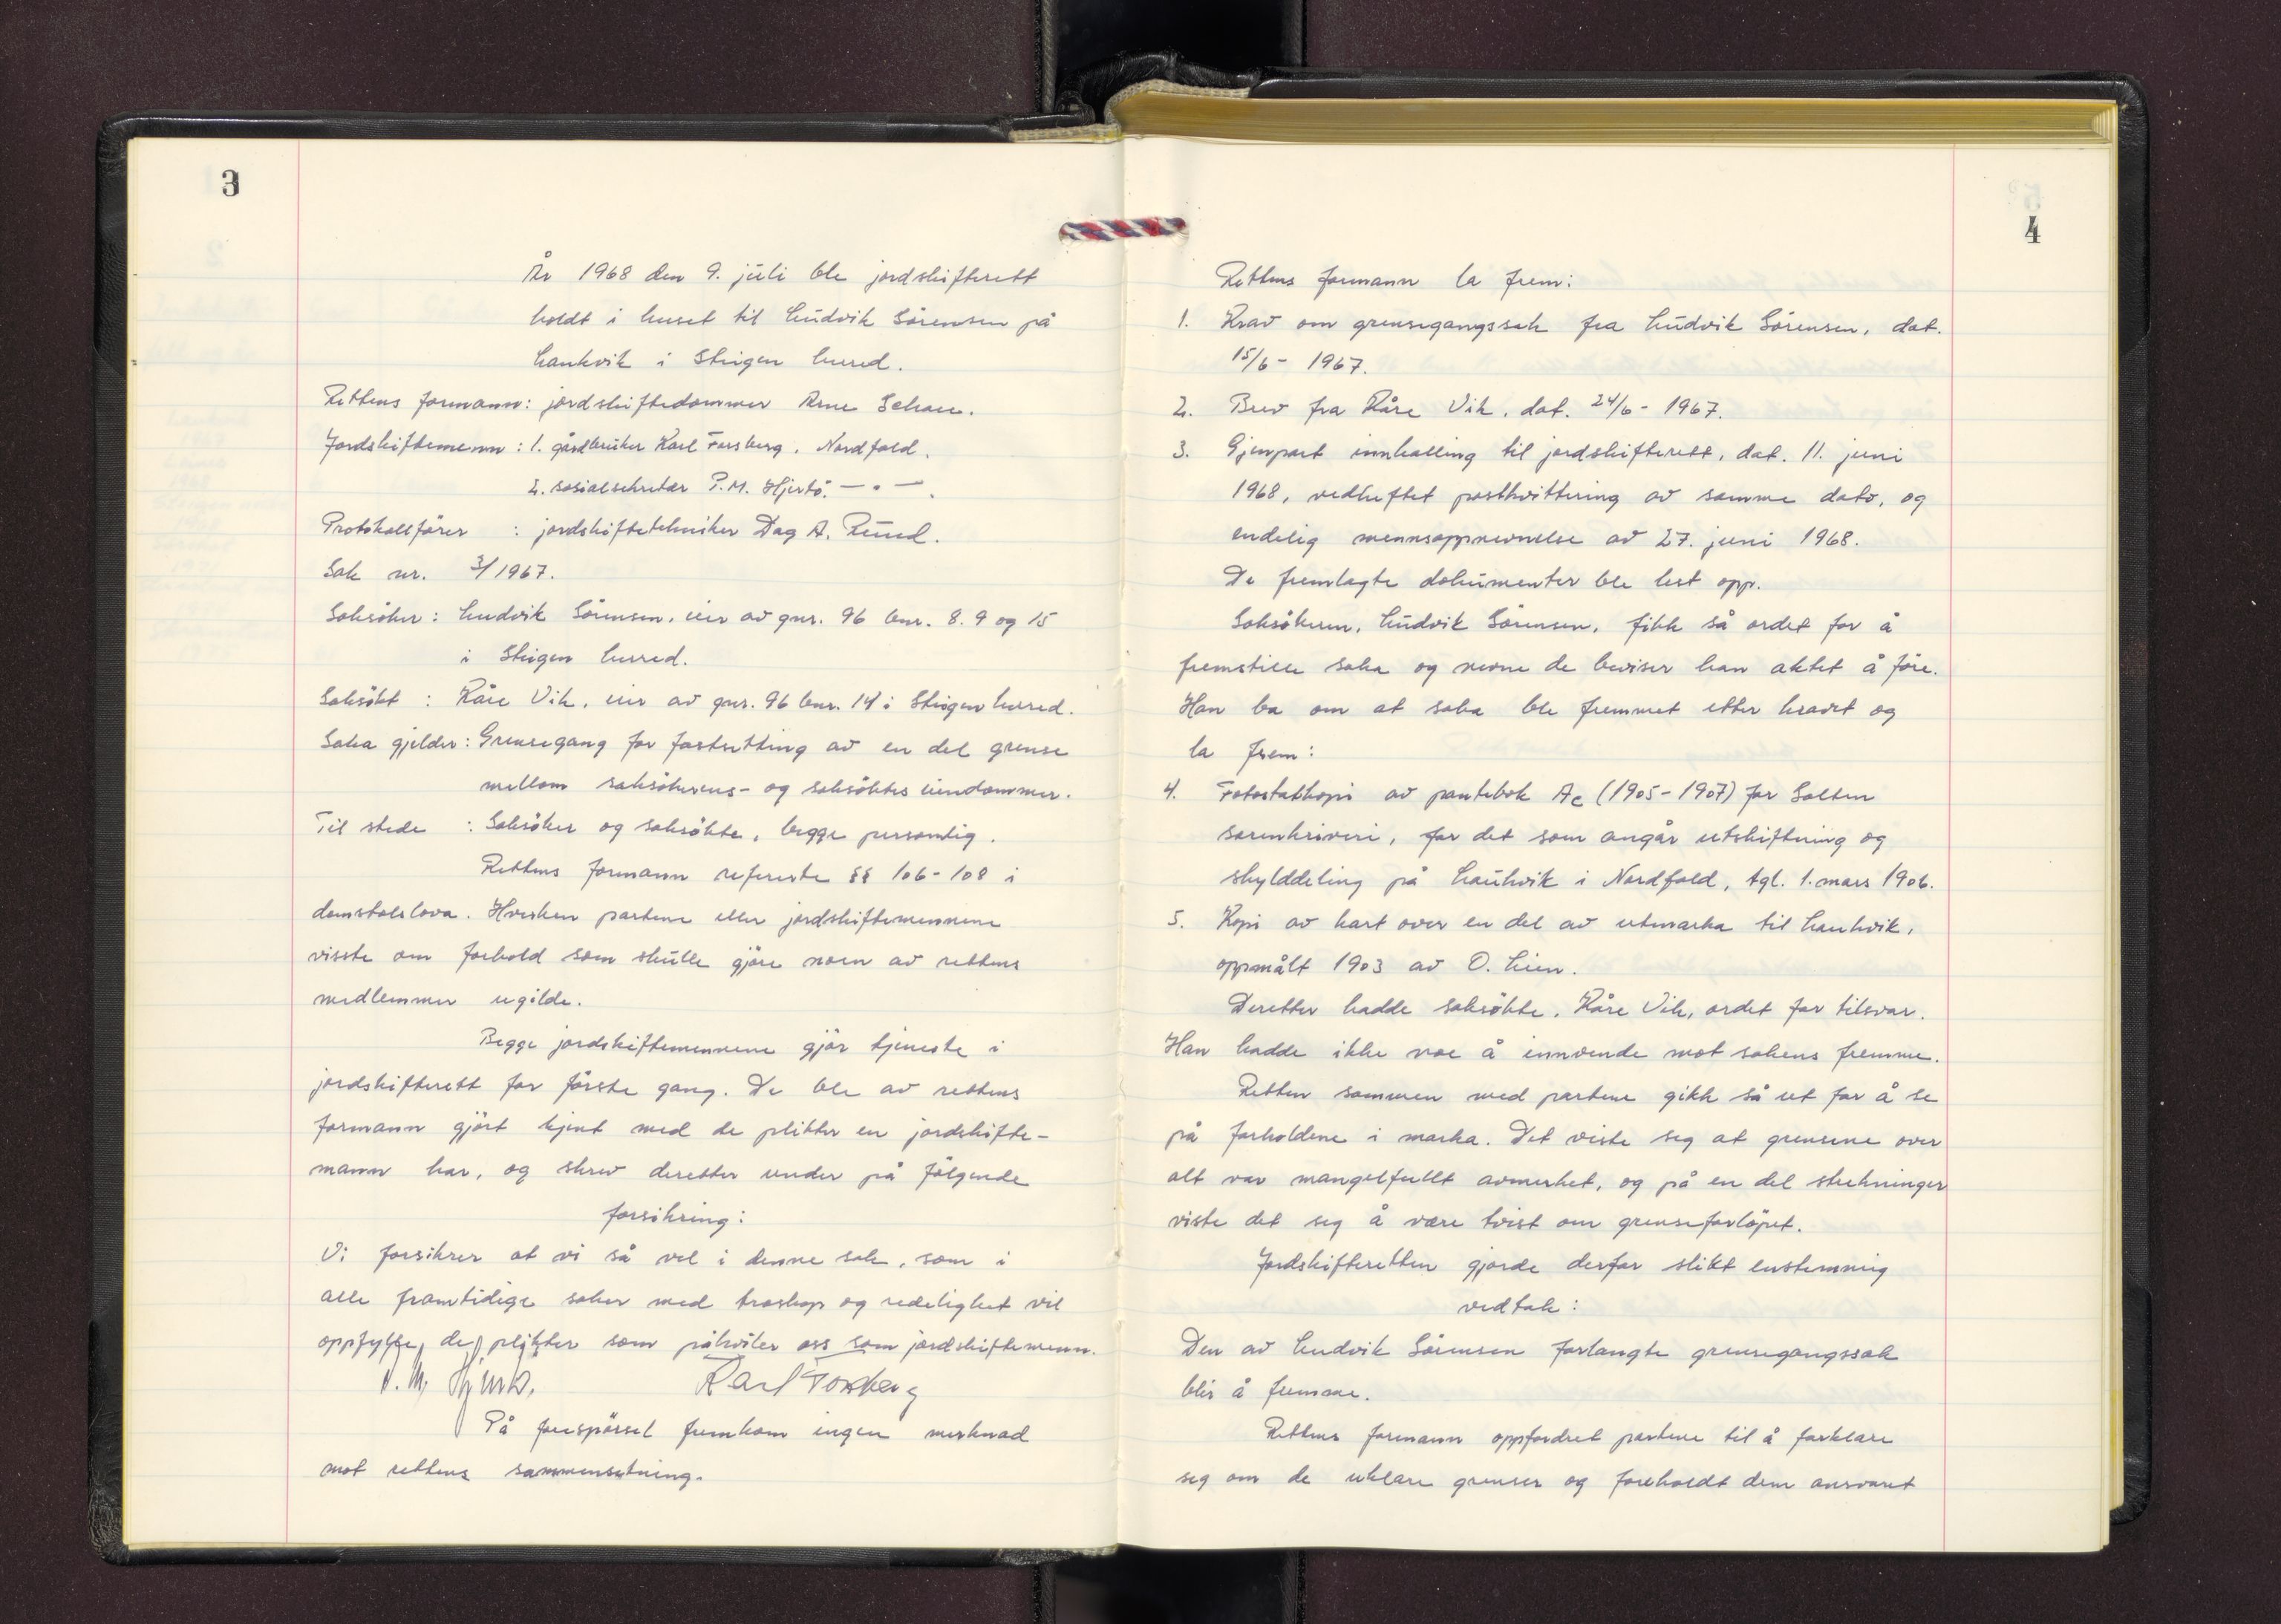 3
År 1968 den 9. juli ble jordskifterett
holdt i huset til Ludvik Sörensen på
Laukvik i Steigen herred.
Rettens formann: jordskiftedommer Arne Schau.
Jordskiftemenn: 1. gårdbruker Karl Forsberg, Nordfold.
2. sosialsekretær P.M. Hjertö. — " —.
Protokollförer : jordskiftetekniker Dag A. Ruud.
Sak nr. 3/1967.
Saksöker: Ludvik Sörensen, eier av gnr. 96 bnr. 8. 9 og 15
i Steigen herred.
Saksökt : Kåre Vik, eier av gnr. 96 bnr. 14 i Steigen herred.
Saka gjelder: Grensegang for fastsetting av en del grense
mellom saksökerens- og saksöktes eiendommer.
Til stede : Saksöker og saksökte, begge personlig.
Rettens formann refererte §§ 106-108 i
domstolslova. Hverken partene eller jordskiftemennene
visste om forhold som skulle gjöre noen av rettens
medlemmer ugilde.
Begge jordskiftemennene gjör tjeneste i
jordskifterett for förste gang. De ble av rettens
formann gjört kjent med de plikter en jordskifte-
mann har, og skrev deretter under på fölgende
forsikring:
Vi forsikrer at vi så vel i denne sak, som i
alle framtidige saker med troskap og redelighet vil
oppfylle de plikter som påhviler oss som jordskiftemenn.
P. M. Hjertö. Karl Forsberg
På forespörsel fremkom ingen merknad
mot rettens sammensetning.
4
Rettens formann la frem:
1. Krav om grensegangssak fra Ludvik Sörensen, dat.
15/6- 1967.
2. Brev fra Kåre Vik, dat. 24/6- 1967.
3. Gjenpart innkalling til jordskifterett, dat. 11. juni
1968, vedheftet postkvittering av samme dato, og
endelig mennsoppnevnelse av 27. juni 1968.
De fremlagte dokumenter ble lest opp.
Saksökeren, Ludvik Sörensen, fikk så ordet for å
fremstille saka og nevne de beviser han aktet å före.
Han ba om at saka ble fremmet etter kravet og
la frem:
4. Fotostatkopi av pantebok Ac (1905-1907) for Salten
sorenskriveri, for det som angår utskiftning og
skylddeling på Laukvik i Nordfold, tgl. 1. mars 1906.
5. Kopi av kart over en del av utmarka til Laukvik,
oppmålt 1903 av O. Lien.
Deretter hadde saksökte, Kåre Vik, ordet for tilsvar.
Han hadde ikke noe å innvende mot sakens fremme.
Retten sammen med partene gikk så ut for å se
på forholdene i marka. Det viste seg at grensene over
alt var mangelfullt avmerket, og på en del strekninger
viste det seg å være tvist om grenseforlöpet.
Jordskifteretten gjorde derfor slikt enstemmig
vedtak:
Den av Ludvik Sörensen forlangte grensegangssak
blir å fremme.
Rettens formann oppfordret partene til å forklare
seg om de uklare grenser og foreholdt dem ansvaret